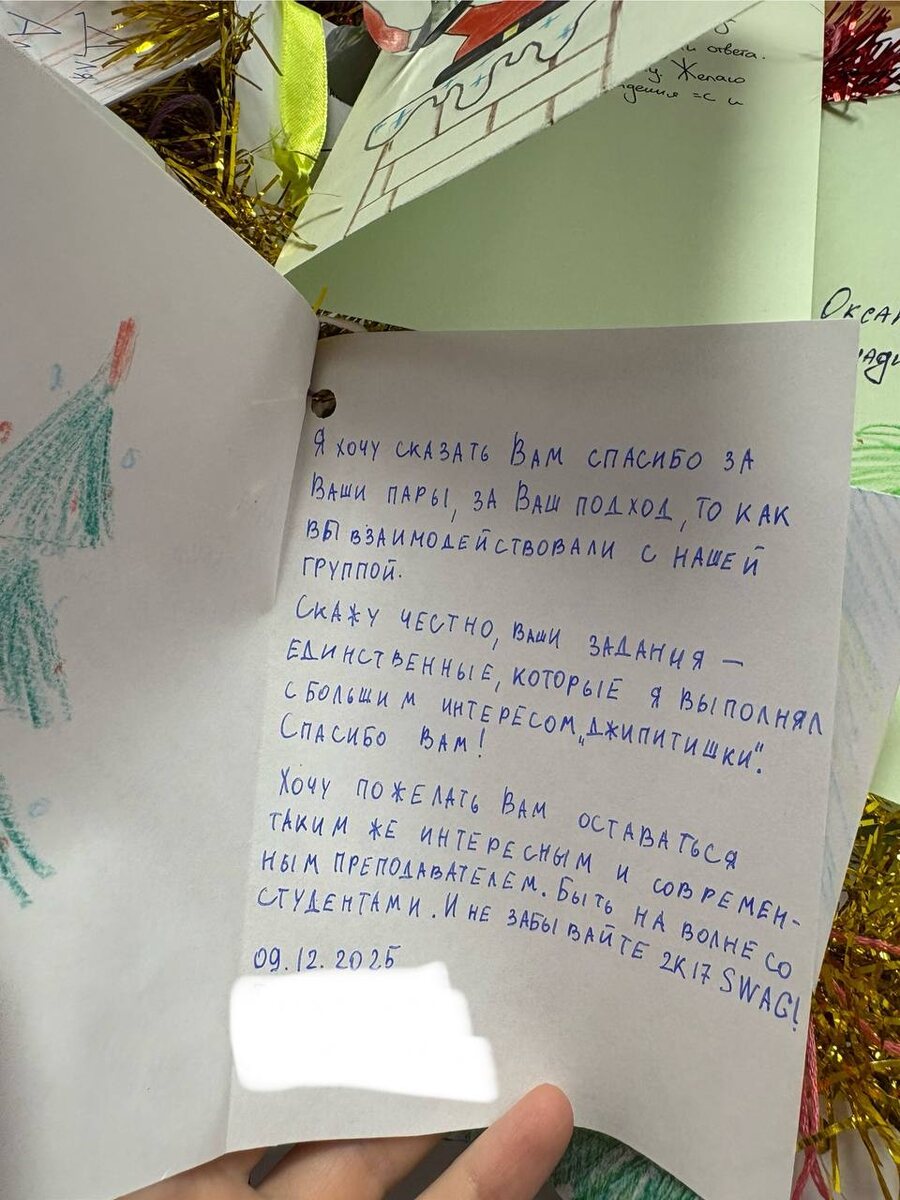 ответа.
Желаю
=С и
Я хочу сказать Вам спасибо за
Ваши пары, за Ваш подход, то как
вы взаимодействовали с нашей
группой.
Скажу честно, Ваши задания —
единственные, которые я выполнял
с большим интересом „джипитишки".
Спасибо Вам!
Хочу пожелать Вам оставаться
таким же интересным и современ-
ным преподавателем. Быть на волне со
студентами. И не забывайте 2К17 SWAG!
09.12.2025